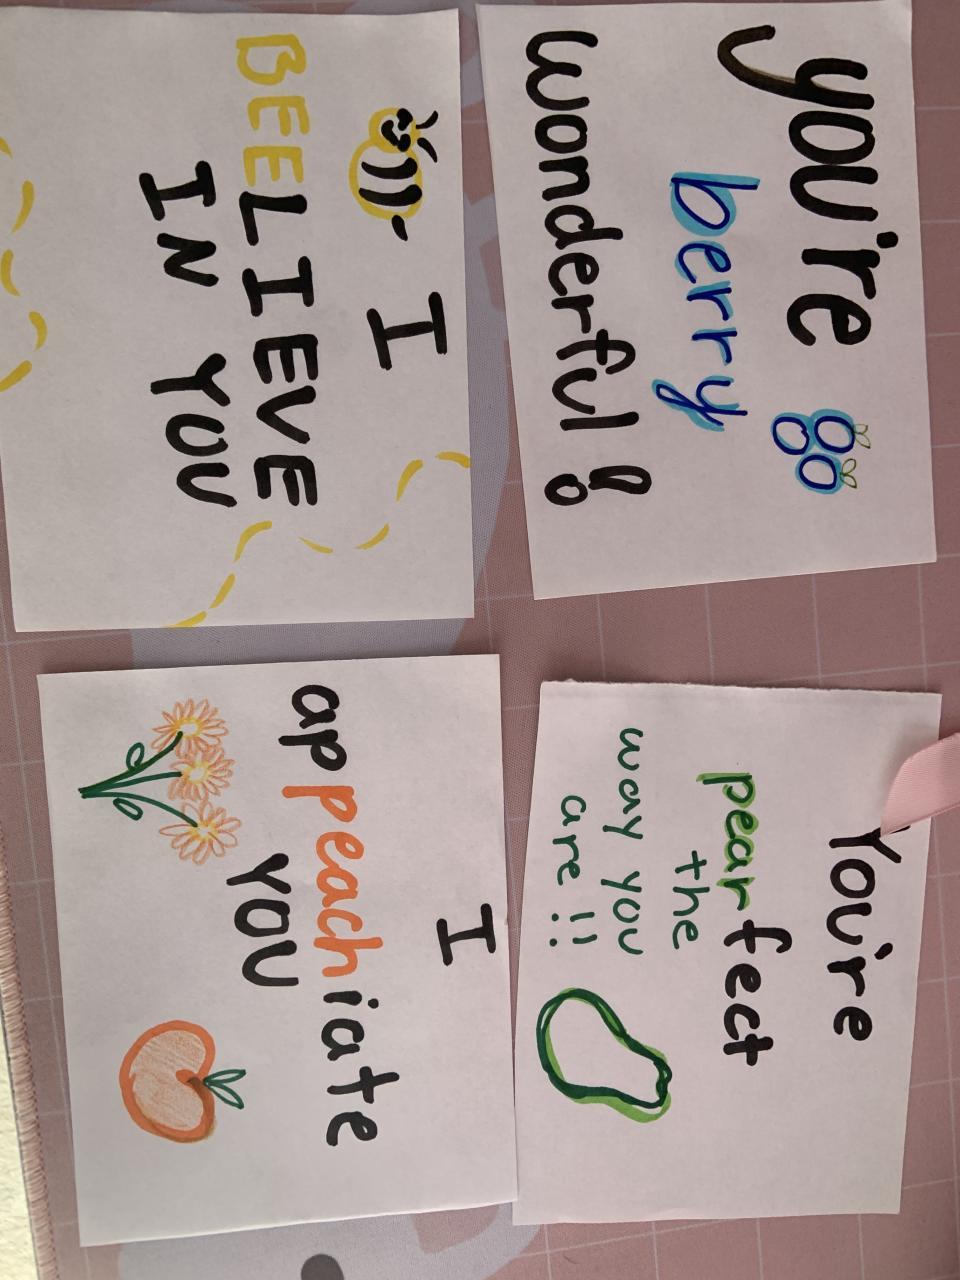 you're
berry
wonderful!
I
BEELIEVE
IN YOU
You're
pearfect
the
way you
are!!
I
appeachiate
YOU